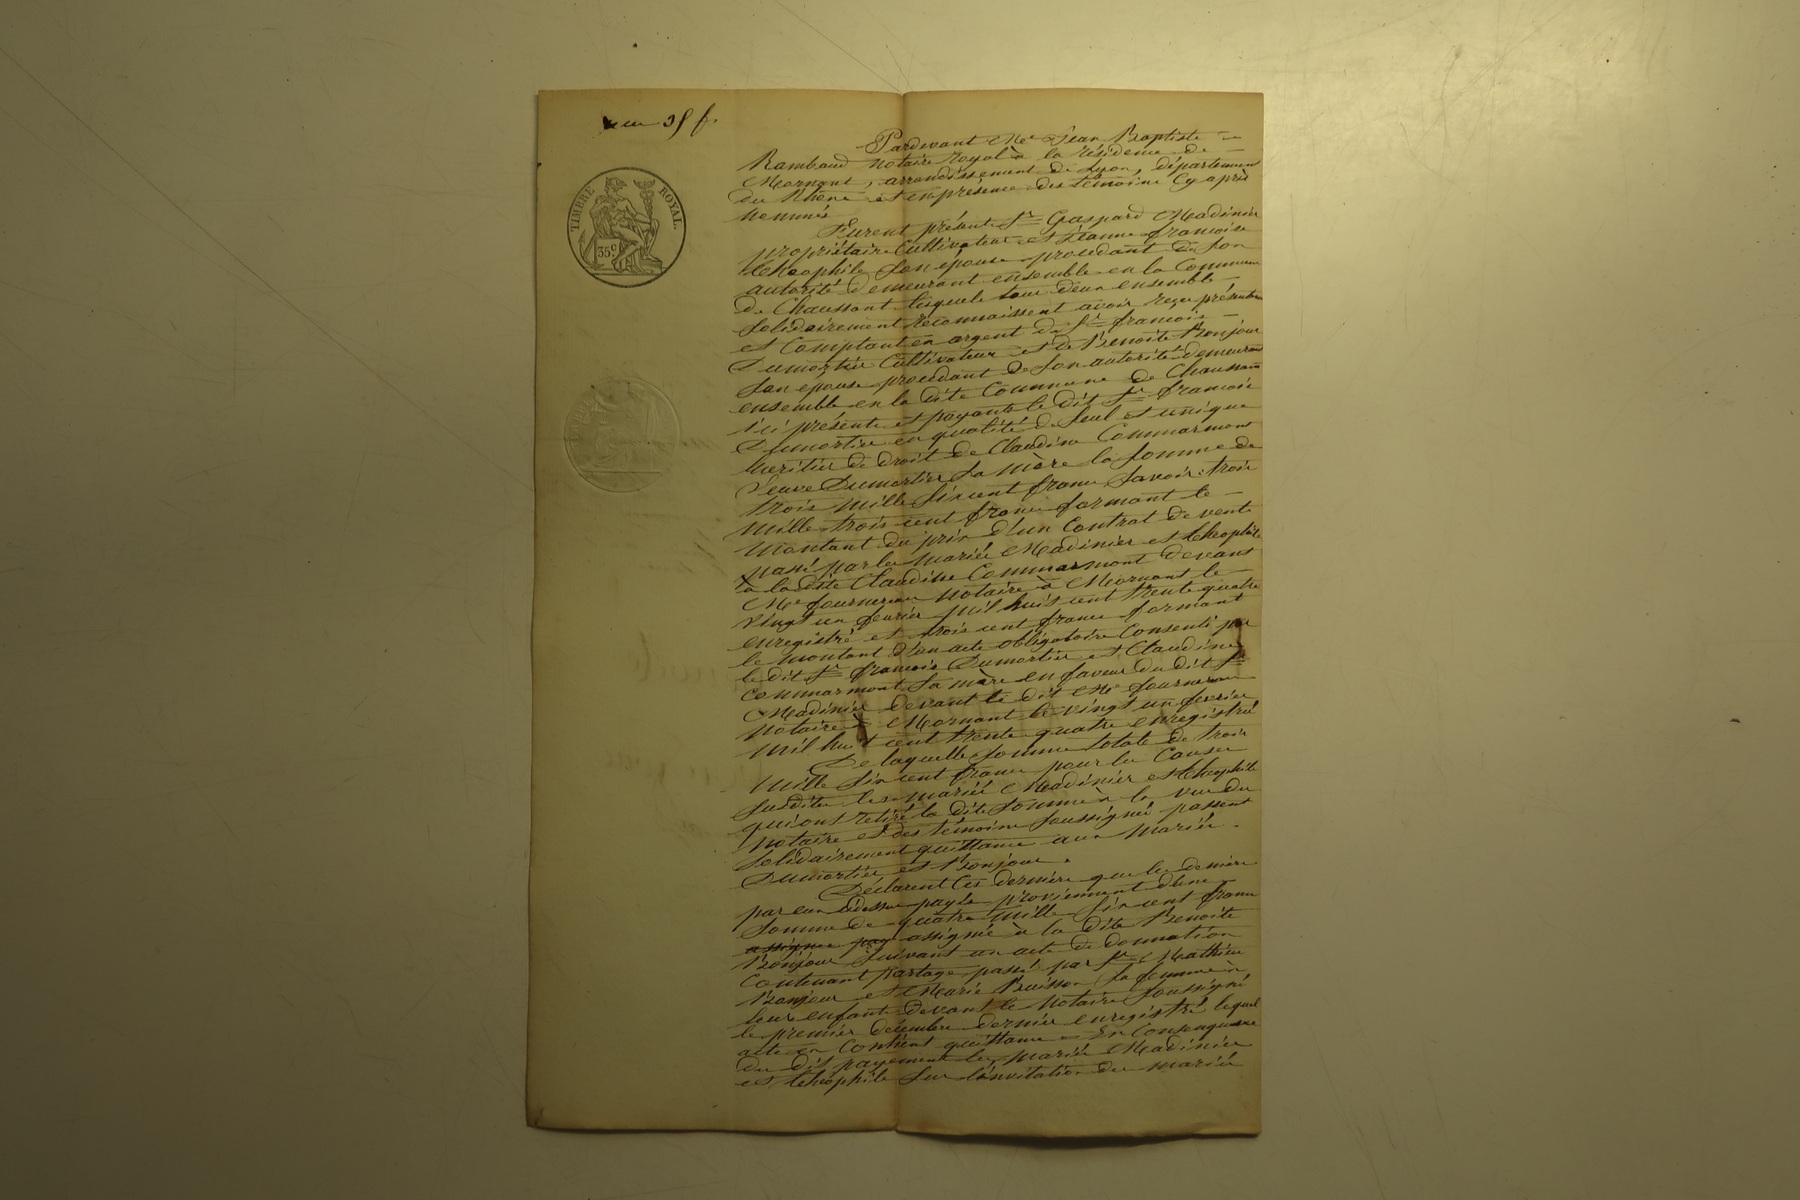 35 f.
TIMBRE ROYAL
35 c.
Pardevant Me Jean Baptiste
Rambaud notaire royal à la résidence de
Mornant, arrondissement de Lyon, département
du Rhône et en présence des témoins cy après
nommés
Furent présents Sr Gaspard Madinier
propriétaire Cultivateur et Jeanne françoise
théophile son épouse procédant de son
autorité demeurant ensemble en la Commune
de Chaussant lesquels tous deux ensemble
solidairement reconnaissent avoir reçu présentement
et Comptant en argent de Sr françois
Dumortier Cultivateur et de Benoite Bonjour
son épouse procédant de son autorité demeurant
ensemble en la dite Commune de Chaussant
ici présents et payants le dit Sr françois
Dumortier en qualité de seul et unique
héritier de droit de Claudine Commarmont
veuve Dumortier sa mère la somme de
trois mille six cent francs savoir : trois
mille trois cent francs formant le
montant du prix d'un Contrat de vente
passé par les mariés Madinier et théophile
à la dite Claudine Commarmont devant
Me fournereau notaire à Mornant le
vingt un février mil huit cent trente quatre
enregistré et trois cent francs formant
le montant d'un acte obligatoire Consenti par
le dit Sr françois Dumortier et Claudine
Commarmont sa mère en faveur du dit Sr
Madinier devant le dit Me fournereau
notaire à Mornant le vingt un février
mil huit cent trente quatre enregistré
De laquelle somme totale de trois
mille six cent francs pour les Causes
susdites les mariés Madinier et théophile
qui ont retiré la dite somme à la vue du
notaire et des témoins soussignés passent
solidairement quittance aux mariés
Dumortier et Bonjour.
Déclarent ces derniers que les deniers
par eux cidessus payés proviennent d'une
somme de quatre mille six cent francs
assignée pay assignée à la dite Benoite
Bonjour suivant un acte de donnation
Contenant partage passé par Sr Mathieu
Bonjour et Marie Buisson sa femme à
leurs enfants devant le notaire soussigné
le premier décembre dernier enregistré lequel
acte en Contient quittance. En Conséquence
du dit payement les mariés Madinier
et théophile sur l'invitation des mariés